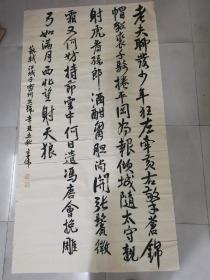 老夫聊發少年狂左牽黃右擎蒼錦
帽貂裘千騎捲平岡為報傾城隨太守親
射虎看孫郎酒酣胸膽尚開張鬢微
霜又何妨持節雲中何日遣馮唐會挽雕
弓如滿月西北望射天狼
蘇軾江城子密州出獵